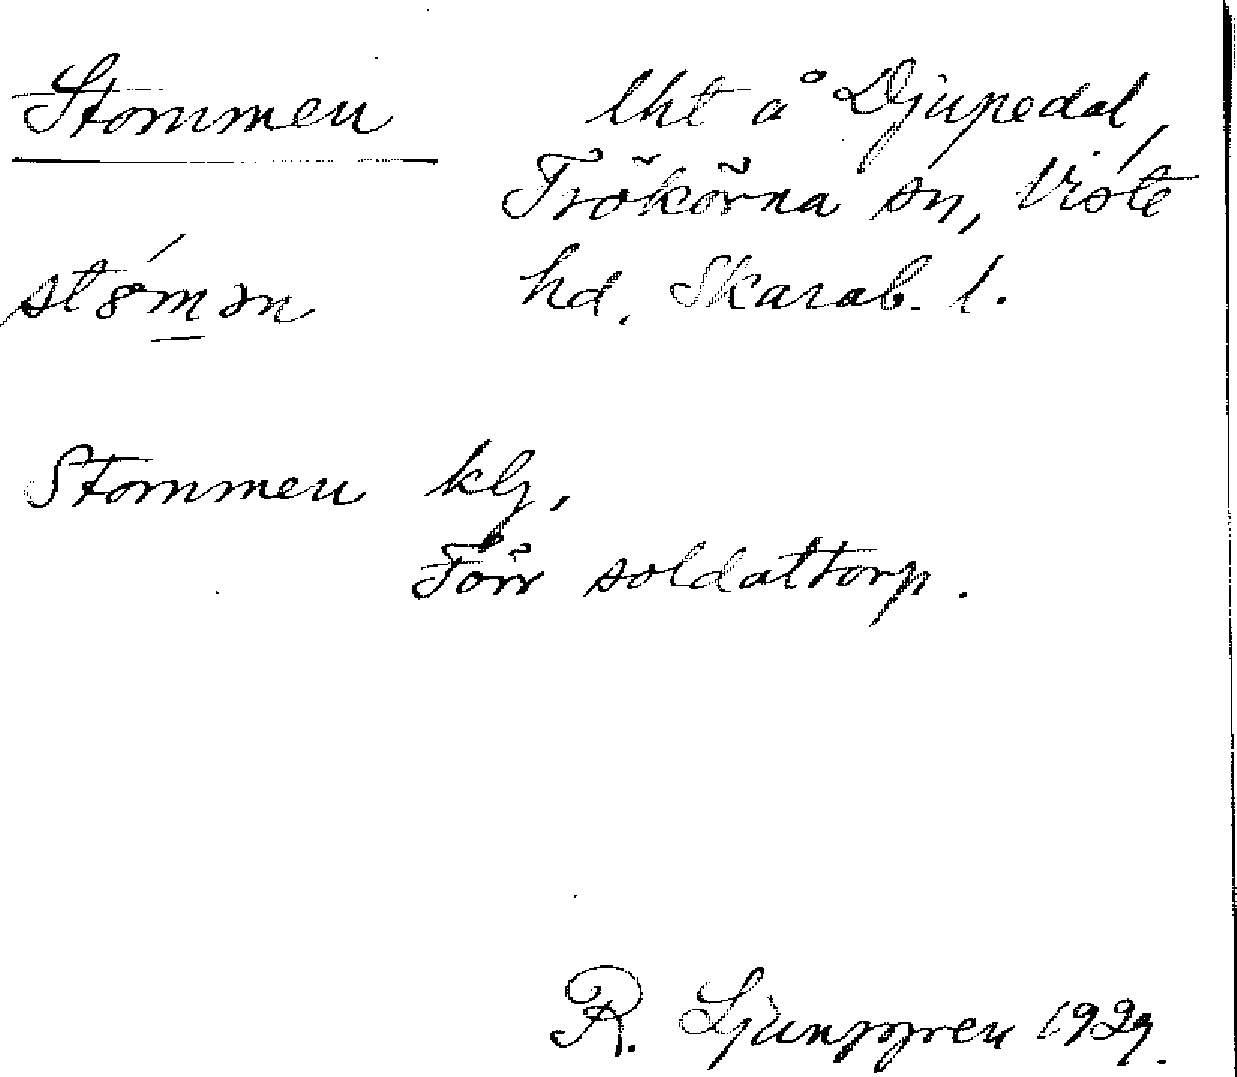 Stommen lht å Djupedal,
Trökörna sn, Viste
hd, Skarab. l.
Stommen klg,
Förr soldattorp.
R. Ljunggren 1929.